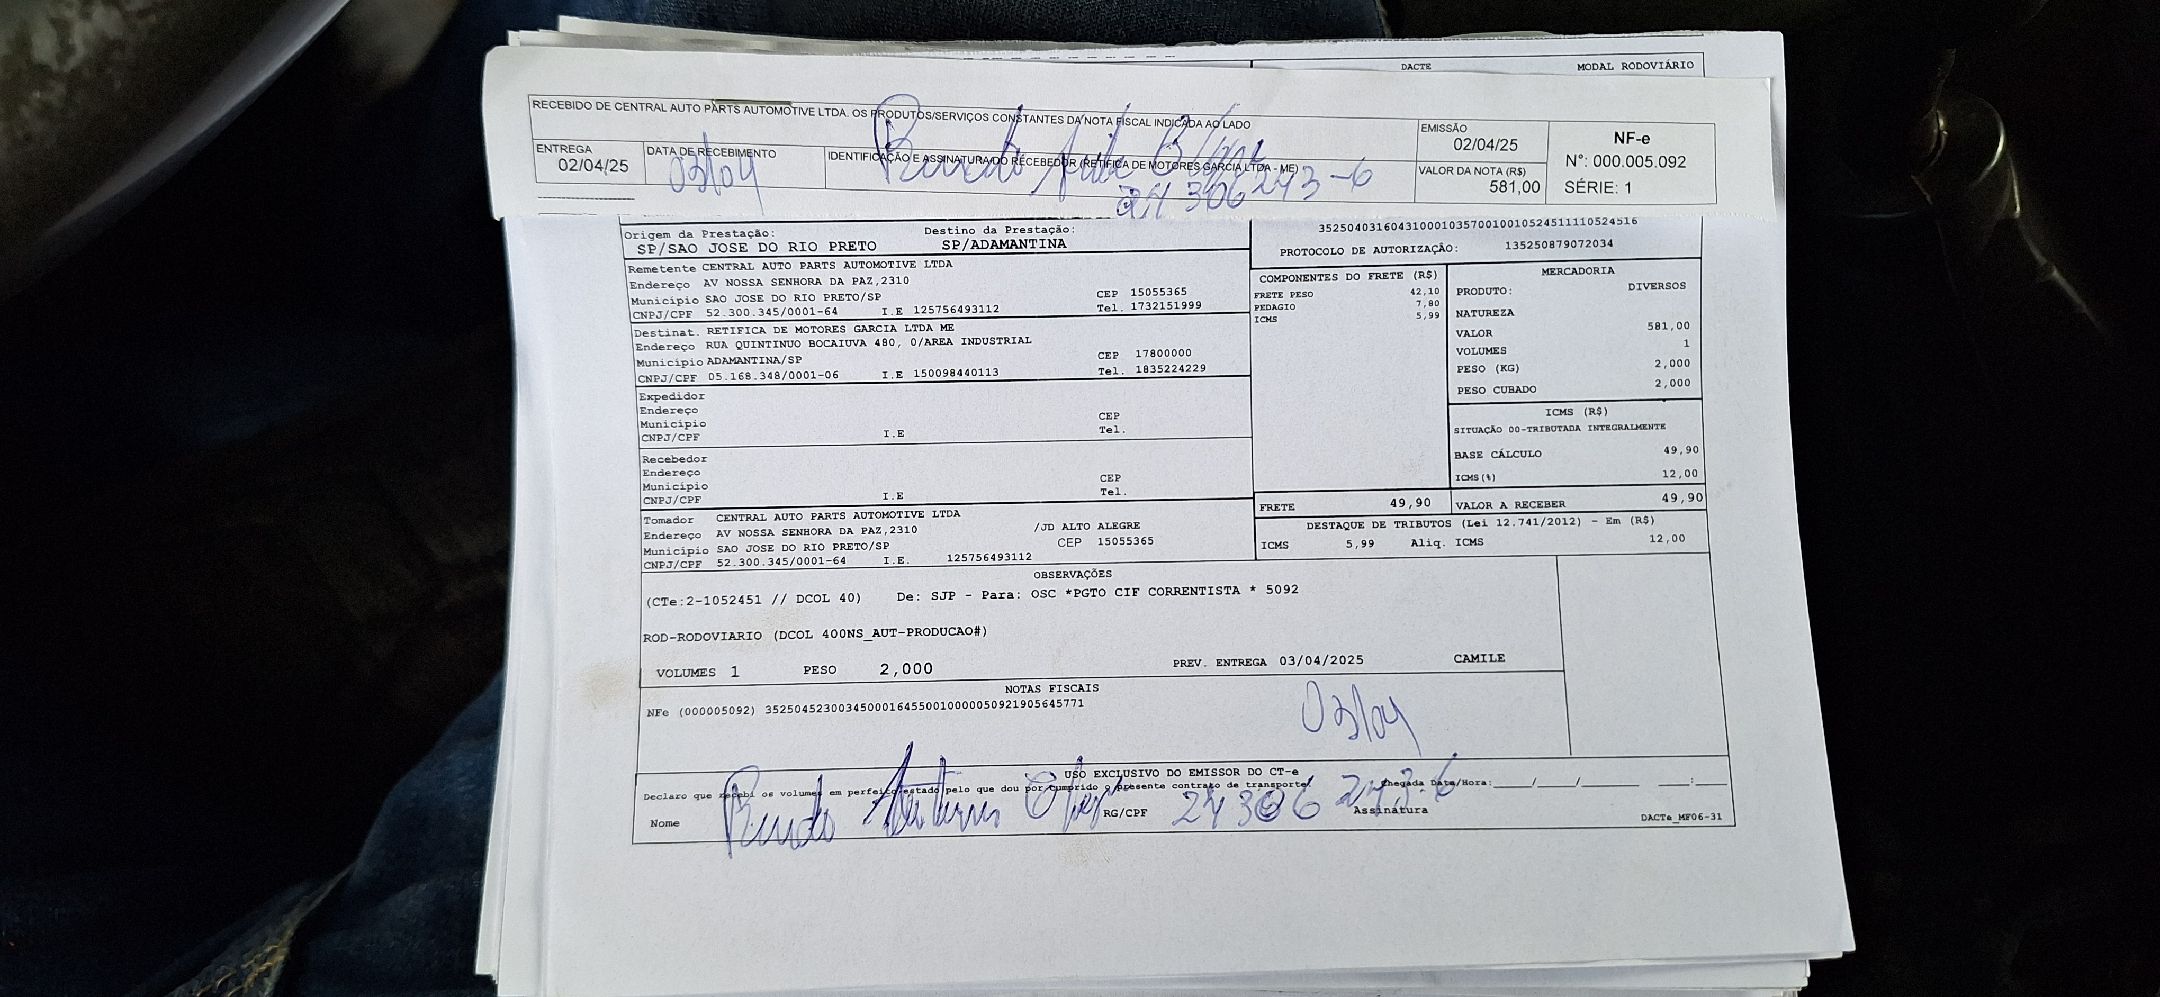 DACTE MODAL RODOVIÁRIO
RECEBIDO DE CENTRAL AUTO PARTS AUTOMOTIVE LTDA. OS PRODUTOS/SERVIÇOS CONSTANTES DA NOTA FISCAL INDICADA AO LADO
ENTREGA
02/04/25
DATA DE RECEBIMENTO
03/04
IDENTIFICAÇÃO E ASSINATURA DO RECEBEDOR (RETIFICA DE MOTORES GARCIA LTDA - ME)
24 306 243-6
EMISSÃO
02/04/25
VALOR DA NOTA (R$)
581,00
NF-e
N°: 000.005.092
SÉRIE: 1
Origem da Prestação: Destino da Prestação:
SP/SAO JOSE DO RIO PRETO SP/ADAMANTINA
Remetente CENTRAL AUTO PARTS AUTOMOTIVE LTDA
Endereço AV NOSSA SENHORA DA PAZ,2310
Município SAO JOSE DO RIO PRETO/SP CEP 15055365
CNPJ/CPF 52.300.345/0001-64 I.E 125756493112 Tel. 1732151999
Destinat. RETIFICA DE MOTORES GARCIA LTDA ME
Endereço RUA QUINTINUO BOCAIUVA 480, 0/AREA INDUSTRIAL
Município ADAMANTINA/SP CEP 17800000
CNPJ/CPF 05.168.348/0001-06 I.E 150098440113 Tel. 1835224229
Expedidor
Endereço
Município CEP
CNPJ/CPF I.E Tel.
Recebedor
Endereço
Município CEP
CNPJ/CPF I.E Tel.
Tomador CENTRAL AUTO PARTS AUTOMOTIVE LTDA
Endereço AV NOSSA SENHORA DA PAZ,2310 /JD ALTO ALEGRE
Município SAO JOSE DO RIO PRETO/SP CEP 15055365
CNPJ/CPF 52.300.345/0001-64 I.E. 125756493112
35250403160431000103570010010524511110524516
PROTOCOLO DE AUTORIZAÇÃO: 135250879072034
COMPONENTES DO FRETE (R$)
FRETE PESO 42,10
PEDAGIO 7,80
ICMS 5,99
MERCADORIA
PRODUTO: DIVERSOS
NATUREZA
VALOR 581,00
VOLUMES 1
PESO (KG) 2,000
PESO CUBADO 2,000
ICMS (R$)
SITUAÇÃO 00-TRIBUTADA INTEGRALMENTE
BASE CÁLCULO 49,90
ICMS(%) 12,00
FRETE 49,90 VALOR A RECEBER 49,90
DESTAQUE DE TRIBUTOS (Lei 12.741/2012) - Em (R$)
ICMS 5,99 Aliq. ICMS 12,00
OBSERVAÇÕES
(CTe:2-1052451 // DCOL 40) De: SJP - Para: OSC *PGTO CIF CORRENTISTA * 5092
ROD-RODOVIARIO (DCOL 400NS_AUT-PRODUCAO#)
VOLUMES 1 PESO 2,000 PREV. ENTREGA 03/04/2025 CAMILE
NOTAS FISCAIS
NFe (000005092) 35250452300345000164550010000050921905645771
03/04
USO EXCLUSIVO DO EMISSOR DO CT-e
Declaro que recebi os volumes em perfeito estado pelo que dou por cumprido o presente contrato de transporte. Chegada Data/Hora:____/____/____ ____:____
Nome RG/CPF 24 306 243-6 Assinatura
DACTe_MF06-31